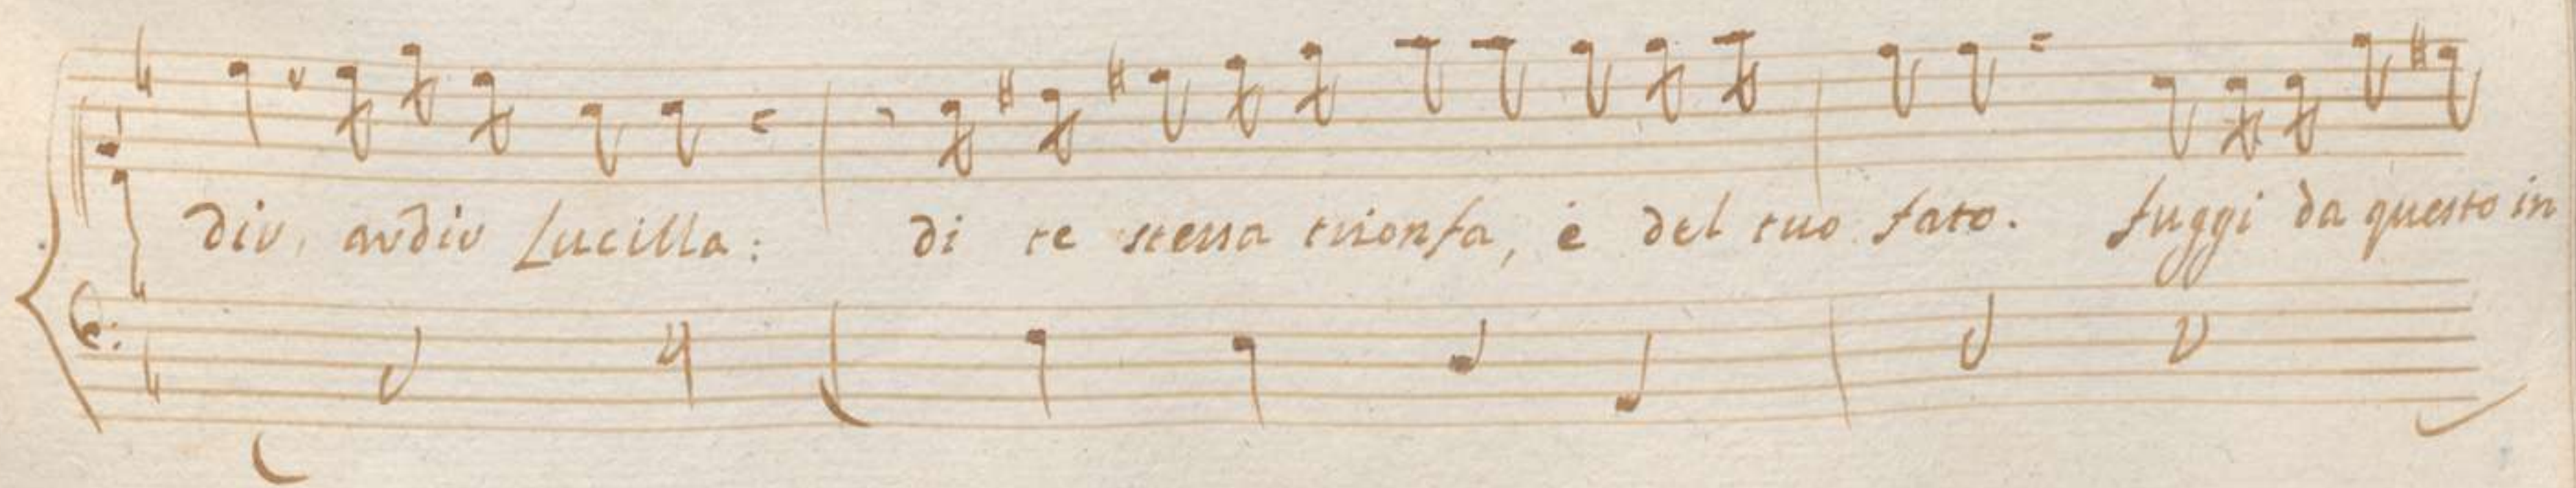 div, avdiv Lucilla: di te stessa trionfa, è del tuo fato. fuggi da questo in